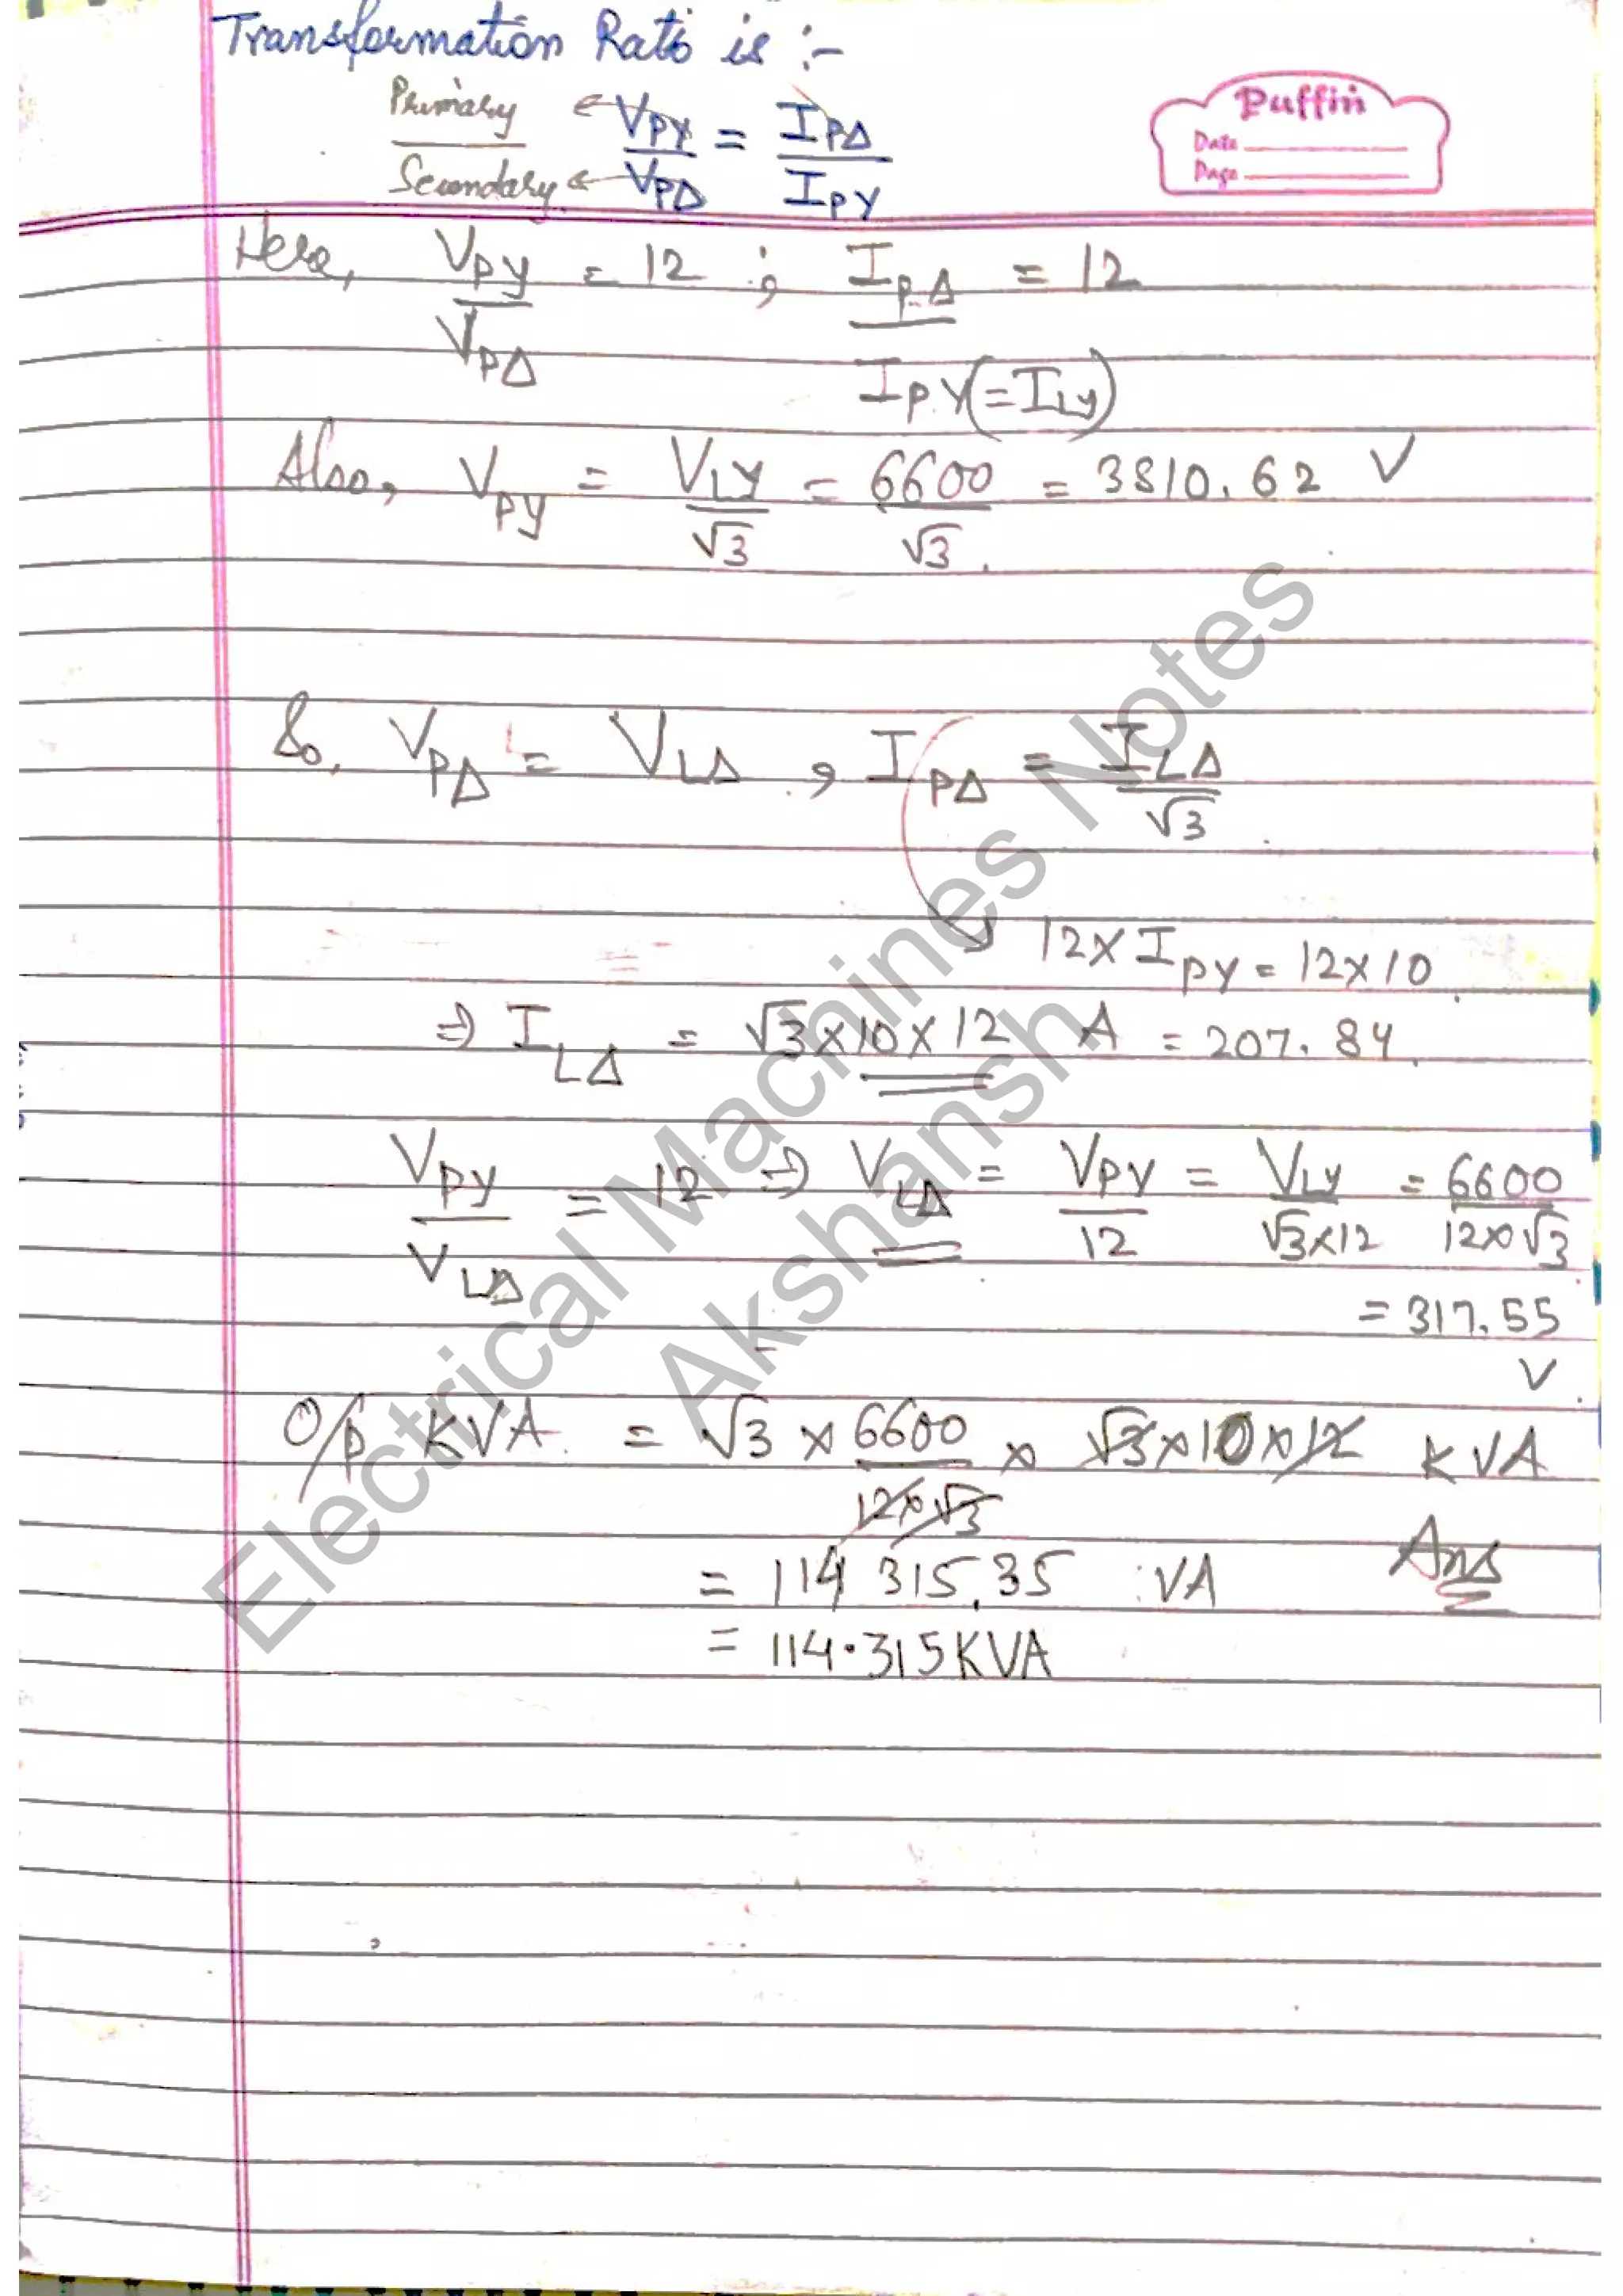 Transformation Ratio is :-
Primary / Secondary ← V_PY / V_PΔ = I_PΔ / I_PY
Puffin
Date
Page
Here, V_PY / V_PΔ = 12 ; I_PΔ / I_PY (= I_LY) = 12
Also, V_PY = V_LY / √3 = 6600 / √3 = 3810.62 V
So, V_PΔ = V_LΔ , I_PΔ = I_LΔ / √3
12 × I_PY = 12 × 10
⇒ I_LΔ = √3 × 10 × 12 A = 207.84
V_PY / V_LΔ = 12 ⇒ V_LΔ = V_PY / 12 = V_LY / √3×12 = 6600 / 12×√3
= 317.55
V
O/p KVA = √3 × 6600 / 12×√3 × √3×10×12 KVA
= 114 315.35 VA Ans
= 114.315 KVA
Electrical Machines Notes
Akshansh